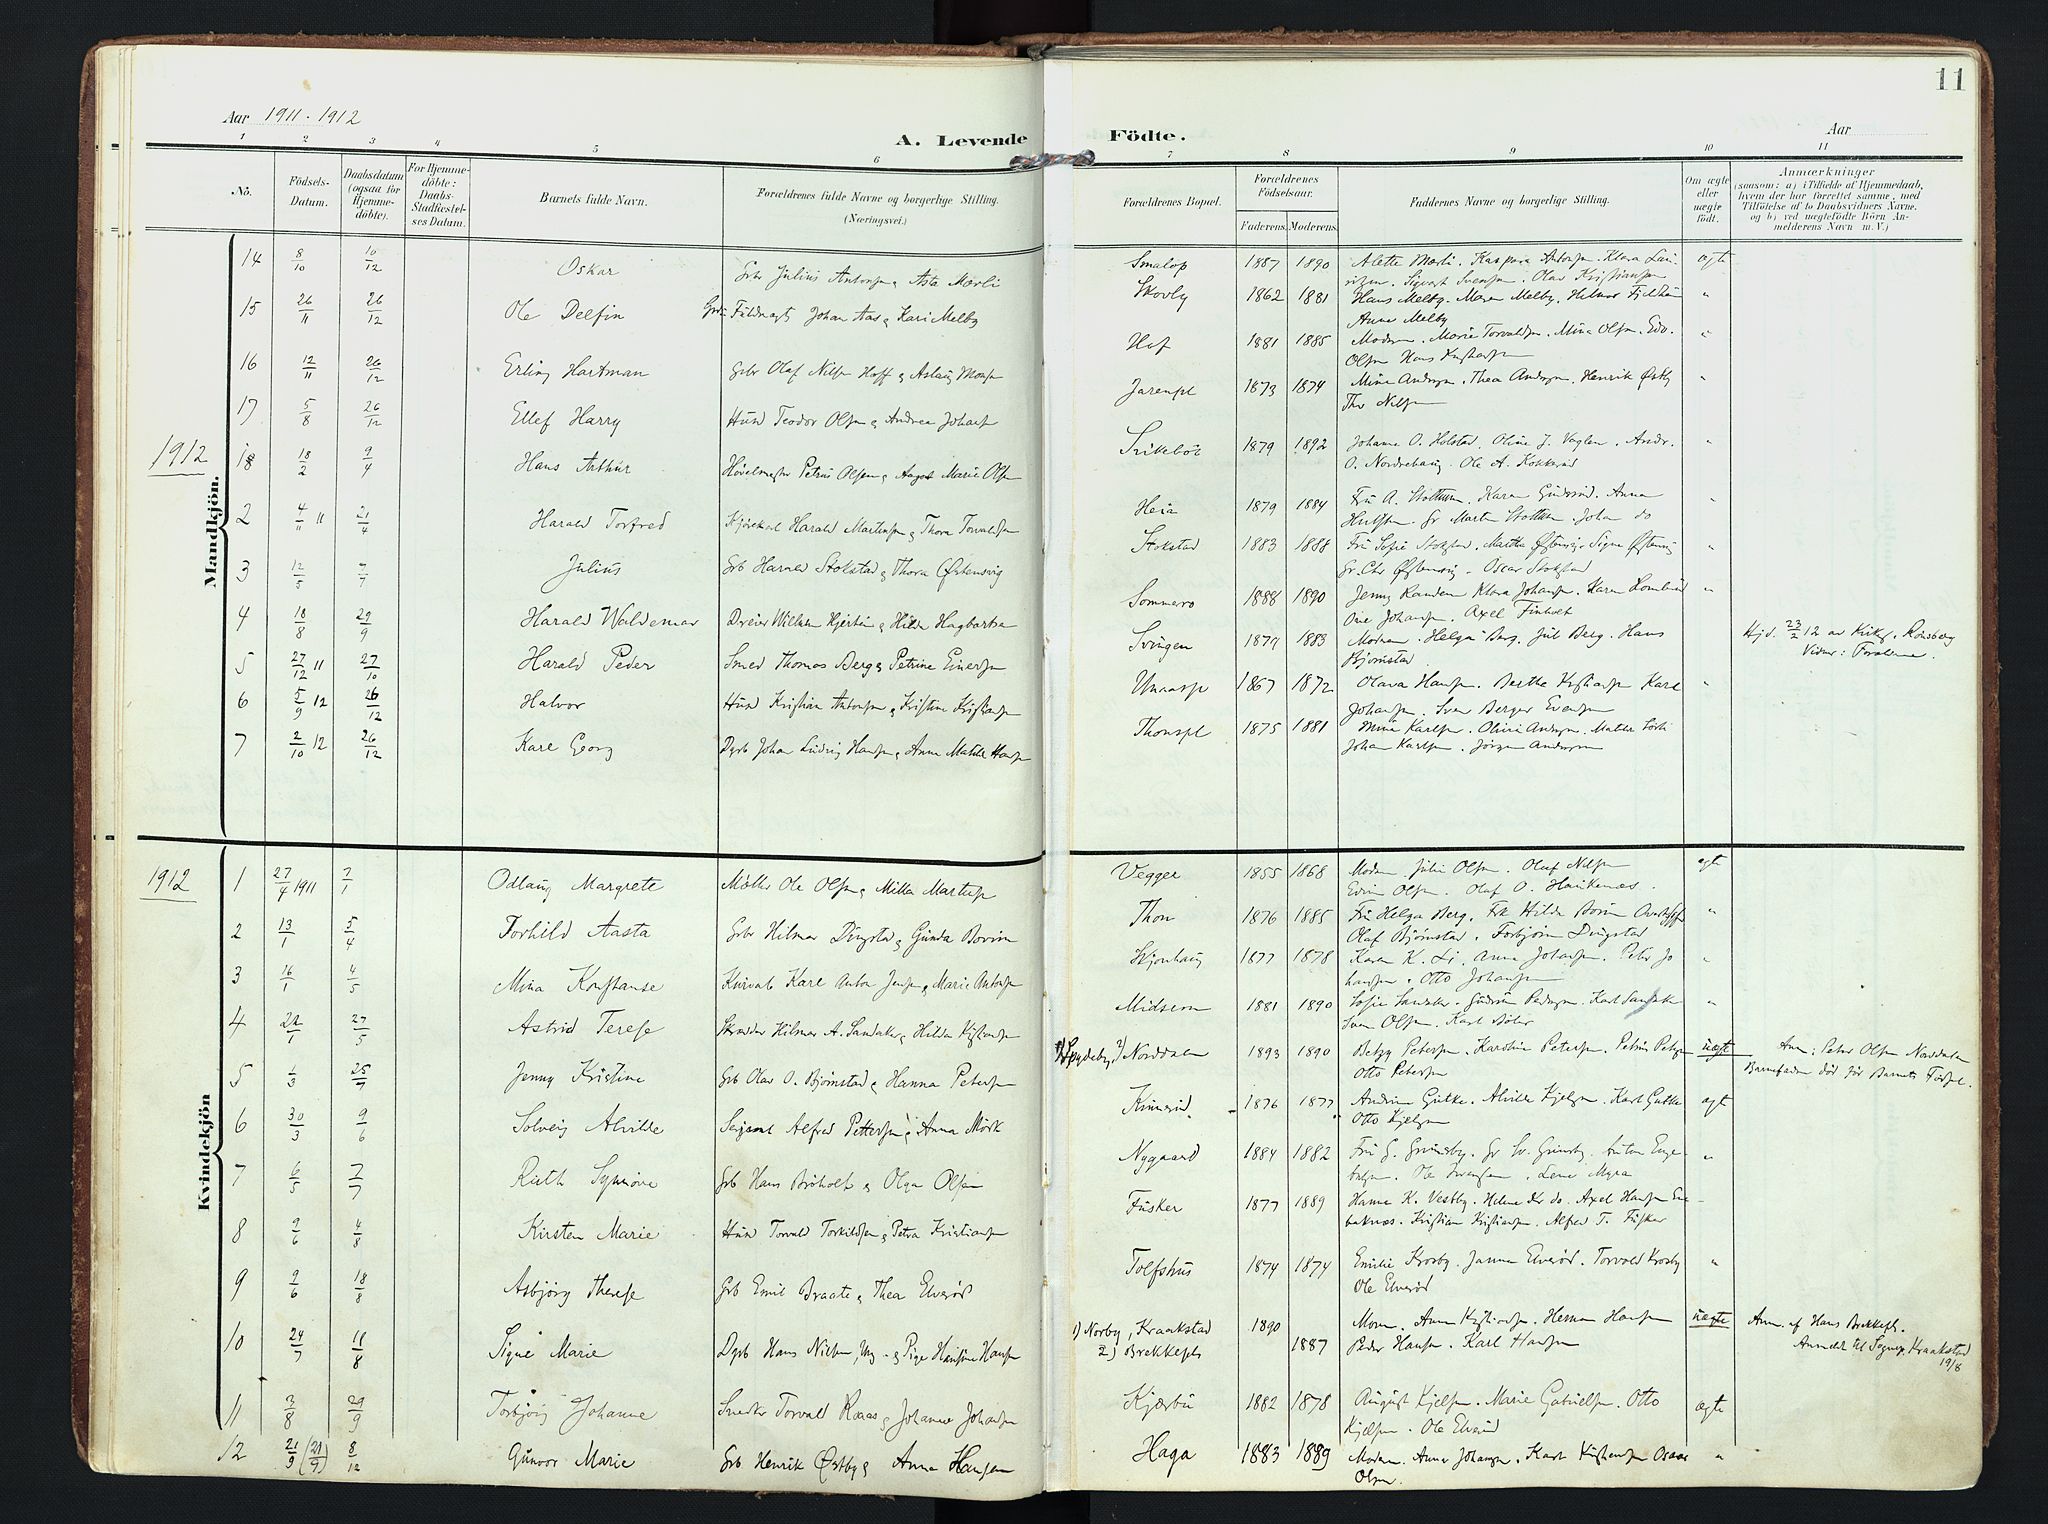 11
Aar 1911-1912
A. Levende Födte.
Aar
1 2 3 4 5 6 7 8 9 10 11
No. Födsels-Datum. Daabsdatum (ogsaa for Hjemme-döbte). For Hjemme-döbte: Daabs-Stadfæstel-ses Datum. Barnets fulde Navn. Forældrenes fulde Navne og borgerlige Stilling. (Næringsvei.) Forældrenes Bopæl. Forældrenes Födselsaar. Faderens. Moderens. Faddernes Navne og borgerlige Stilling. Om ægte eller uægte födt. Anmærkninger (saasom: a) i Tilfælde af Hjemmedaab, hvem der har forrettet samme, med Tilföielse af to Daabsvidners Navne, og b) ved uægtefödte Börn An-melderens Navn m. V.)
Mandkjön.
14 8/10 10/12 Oskar Grbr Julius Antonsen & Asta Mærli Smalop 1887 1890 Alette Mærli. Kaspara Antonsen. Klara Lau-
ritzen. Sigvart Svensen. Olav Kristiansen ægte
15 26/11 26/12 Ole Delfin Johan Aas & Kari Melby Skovly 1862 1881 Hans Melby. Maren Melby. Hilmar
Anna Melby "
16 12/11 26/12 Erling Hartman Grbr Olaf Nilsen Hoff & Aslaug Monsen Hof 1881 1885 Moderen. Marie Torvaldsen. Mina Olsen. Edv.
Olsen Hans "
17 5/8 26/12 Ellef Harry Husm Teodor Olsen & Andrea Johansen Jarenpl 1873 1874 Mina Andersen. Thea Andersen. Henrik Østby
Thv Nilsen "
1912
18 18/2 9/4 Hans Arthur Petrus Olsen & August Marie Olsen 1879 1892 Johanne O. Holstad. Oline J. Vaglen. Andr.
O. Nordrehaug. Ole A. "
2 4/11 11 21/4 Harald Torfred Harald Martinsen & Thora Torvaldsen Heia 1879 1884 Fru A. Slottum. Karen Anna
Gr Martin Slottum. Johan do "
3 12/5 7/7 Julius Grb Harald Stokstad & Thora Østensvig Stokstad 1883 1888 Fru Sofie Stokstad. Martha Østensvig. Signe Østensvig
Gr. Chr Østensvig. Oscar Stokstad "
4 18/8 29/9 Harald Waldemar Dreier Wilhelm & Hilda Hagbartsen Sommero 1888 1890 Jenny Randem Klara Johansen. Karen
Johansen. Axel Finholt "
5 27/12 11 27/10 Harald Peder Smed Thomas Berg & Petrine Einersen Svingen 1879 1883 Moderen. Helga Berg. Jul Berg. Hans
Bjørnstad Hjd. 23/2 12 av Kirkes. Ronsberg
Vidner: Forældrene.
6 5/9 12 26/12 Halvor Husm Kristian Antonsen & Kristine Kristiansen 1867 1872 Olava Hansen. Berthe Karl
Johansen. Sven Berger Evensen "
7 2/10 12 26/12 Karl Georg Johan Ludvig Hansen & Anna Matilde Hansen Thonspl 1875 1881 Mina Karlsen. Olivia Andersen.
Johan Karlsen. Jørgen Andersen
1912
Kvindekjön
1 27/4 1911 7/1 Odlaug Margrete Møller Ole Olsen & Milla Martinsen Vegger 1855 1868 Modern. Julie Olsen. Olaf Nilsen
Edvin Olsen. Olaf O. ægte
2 13/1 5/4 Torhild Aasta Grbr Hilmar Dingstad & Gunda Bovim Thon 1876 1885 Fru Helga Berg. Frk Hilda Bovim
Olaf Bjørnstad. Torbjørn Dingstad "
3 16/1 4/5 Mina Konstanse Karl Anton Jensen & Marie Antonsen Skjønhaug 1877 1878 Karen K. Li. Anna Johansen. Peter Jo
hansen. Otto Johansen "
4 22/1 27/5 Astrid Terese Skrædder Hilmar A. Sandaker & Hilda Kristiansen Midsem 1881 1890 Sofie Sandaker. Gudrun Pedersen. Karl Sandaker
Sven Olsen. Karl "
5 1/3 25/7 Jenny Kristine Grb Olav O. Bjørnstad & Hanna Petersen 1) Spydeberg 2) Norddalen 1893 1890 Betzy Petersen. Karoline Petersen. Petrus Petersen
Otto Petersen uægte Anm: Peter Olsen Norddalen
Barnefaderen død før Barnets Fødsel.
6 30/3 9/6 Solveig Alvilde Sersjant Alfred Pettersen & Anna Mørk 1876 1877 Andrine Gutke. Alvilde Kjelsen. Karl Gutke
Otto Kjelsen ægte
7 6/5 7/7 Ruth Synnøve Grb Hans Brøholt & Olga Olsen Nygaard 1884 1882 Fru G. Grimsby. Gr Sv. Grimsby. Anton Enge-
bretsen. Ole Lene Myra "
8 9/6 4/8 Kirsten Marie Husm Torvald Torkildsen & Petra Kristiansen Fusker 1877 1889 Hanna K. Vestby. Helene do. Axel Hansen
Kristian Kristiansen. Alfred T. Fusker
9 9/6 18/8 Asbjørg Therese Grb Emil Braate & Thea Elverød Tolfshus 1874 1874 Emilie Krosby. Janna Elverød. Torvald Krosby
Ole Elverød "
10 24/7 11/8 Signe Marie Hans Nilsen, Ug. & Pige Hansine Hansen 1) Norby, Kraakstad
2) Brekkepl 1890 1887 Moren. Anna Kristiansen. Herman Hansen
Peder Hansen. Karl Hansen uægte Anm. af Hans Brekkepl.
Anmeldt til Sognepr. Kraakstad
19/8
11 3/8 29/9 Torbjørg Johanne Snedker Torvald & Johanne Johansen Kjærbu 1882 1878 August Kjelsen. Marie Gabrielsen. Otto
Kjelsen. Ole Elverød ægte
12 21/9 (21/9) 8/12 Gunvor Marie Grb Henrik Østby & Anna Hansen Haga 1883 1889 Moderen. Anna Johansen. Karl Kristiansen Oscar
Olsen. "